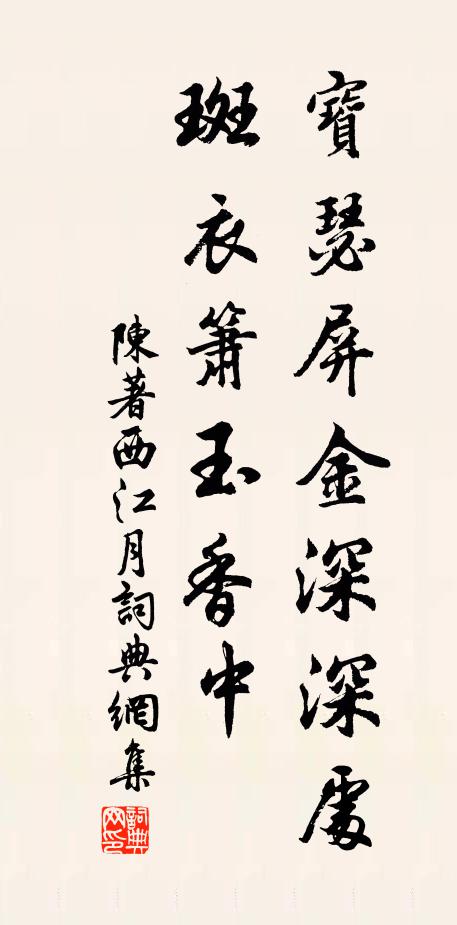 寶瑟屏金深深處
斑衣簫玉香中
陳著西江月詞典網集
詞典網印